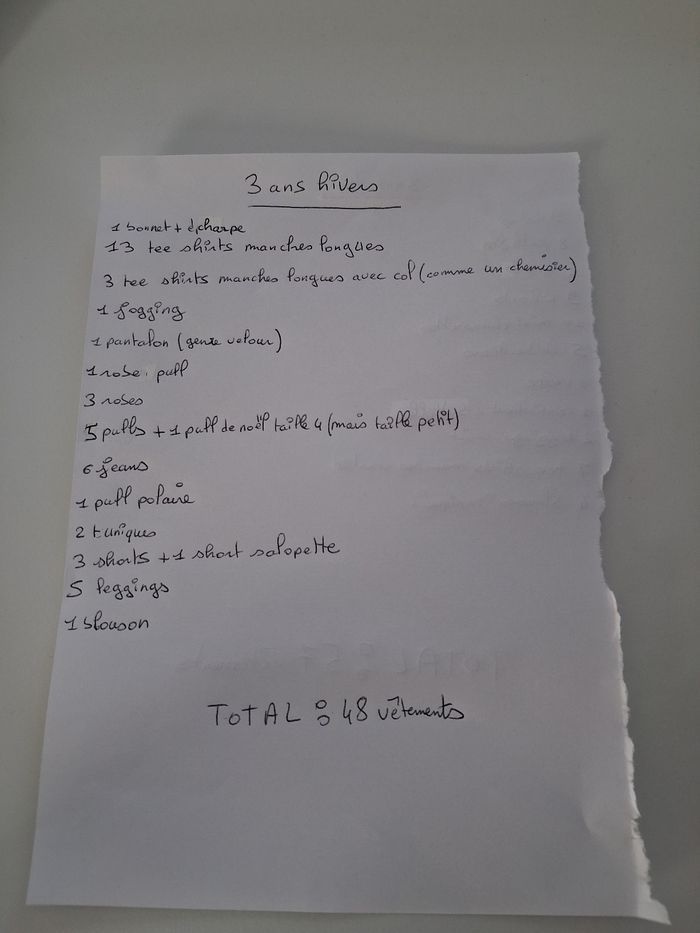 3 ans hivers
1 bonnet + écharpe
13 tee shirts manches longues
3 tee shirts manches longues avec col (comme un chemisier)
1 jogging
1 pantalon (genre velour)
1 robe pull
3 robes
5 pulls + 1 pull de noël taille 4 (mais taille petit)
6 jeans
1 pull polaire
2 tuniques
3 shorts + 1 short salopette
5 leggings
1 blouson
TOTAL : 48 vêtements